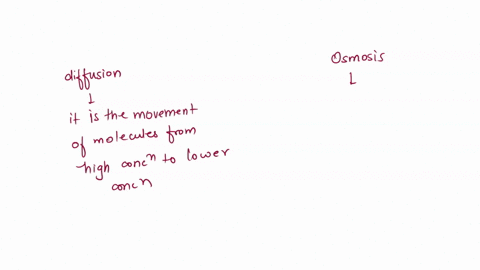 diffusion
it is the movement
of molecules from
high concⁿ to lower
concⁿ
Osmosis